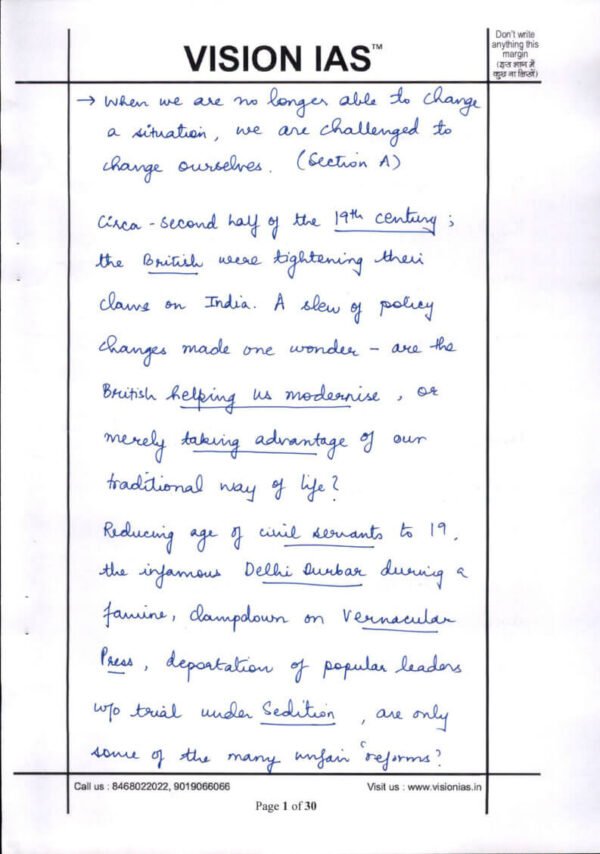 VISION IAS™
Don't write
anything this
margin
(इस भाग में
कुछ ना लिखें)
→ When we are no longer able to change
a situation, we are challenged to
change ourselves. (Section A)
Circa - second half of the 19th century ;
the British were tightening their
claws on India. A slew of policy
changes made one wonder – are the
British helping us modernise, or
merely taking advantage of our
traditional way of life?
Reducing age of civil servants to 19,
the infamous Delhi Durbar during a
famine, clampdown on Vernacular
Press, deportation of popular leaders
w/o trial under Sedition, are only
some of the many unfair 'reforms'.
Call us : 8468022022, 9019066066
Visit us : www.visionias.in
Page 1 of 30